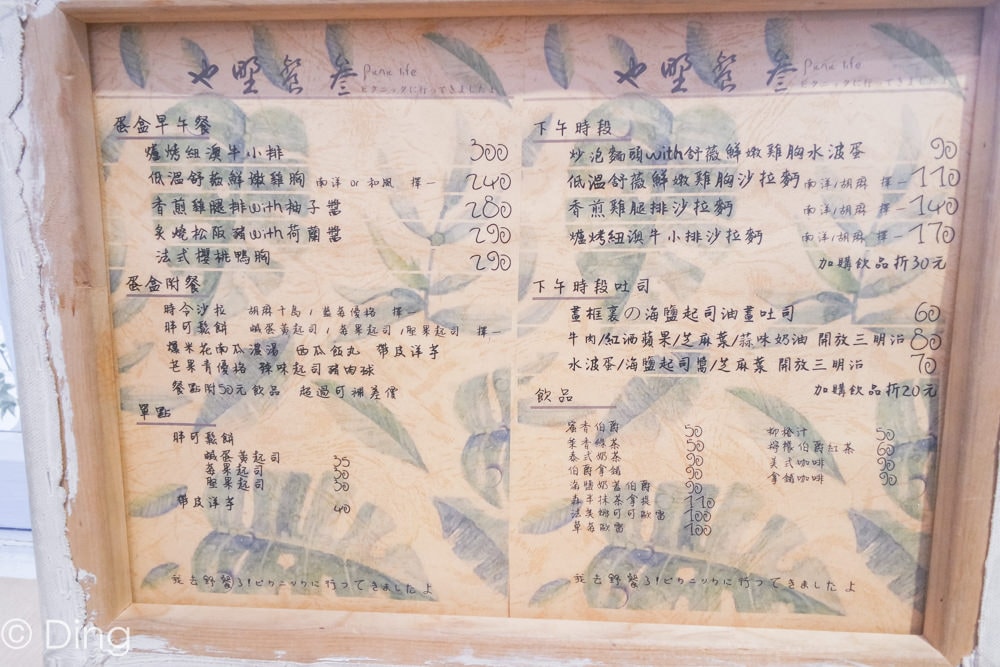 也野餐 參
Panu life
ピクニックに行ってきましたよ
蛋盒早午餐
爐烤紐澳牛小排 300
低溫舒薇鮮嫩雞胸 南洋 or 和風 擇一 240
香煎雞腿排with柚子醬 280
炙燒松阪豬with荷蘭醬 290
法式櫻桃鴨胸 290
蛋盒附餐
時令沙拉 胡麻千島/藍莓優格 擇一
胖可鬆餅 鹹蛋黃起司/莓果起司/堅果起司 擇一
爆米花南瓜濃湯 西瓜飯丸 帶皮洋芋
芒果青優格 辣味起司豬肉球
餐點附50元飲品 超過可補差價
單點
胖可鬆餅
鹹蛋黃起司 35
莓果起司 30
堅果起司 30
帶皮洋芋 40
我去野餐了!ピクニックに行ってきましたよ
也野餐 參
Panu life
ピクニックに行ってきましたよ
下午時段
炒泡麵頭with舒薇鮮嫩雞胸水波蛋 90
低溫舒薇鮮嫩雞胸沙拉麵 南洋/胡麻 擇一 110
香煎雞腿排沙拉麵 南洋/胡麻 擇一 140
爐烤紐澳牛小排沙拉麵 南洋/胡麻 擇一 170
加購飲品折30元
下午時段吐司
畫框裏の海鹽起司油畫吐司 60
牛肉/紅酒蘋果/芝麻葉/蒜味奶油 開放三明治 80
水波蛋/海鹽起司醬/芝麻葉 開放三明治 70
加購飲品折20元
飲品
蜜香伯爵 50
茉香綠茶 50
泰式奶茶 90
伯爵拿鐵 90
海鹽奶蓋伯爵 90
森半抹茶拿鐵 110
法芙娜可可歐蕾 100
草莓歐蕾 100
柳橙汁 50
檸檬伯爵紅茶 60
美式咖啡 90
拿鐵咖啡 90
我去野餐了!ピクニックに行ってきましたよ
© Ding